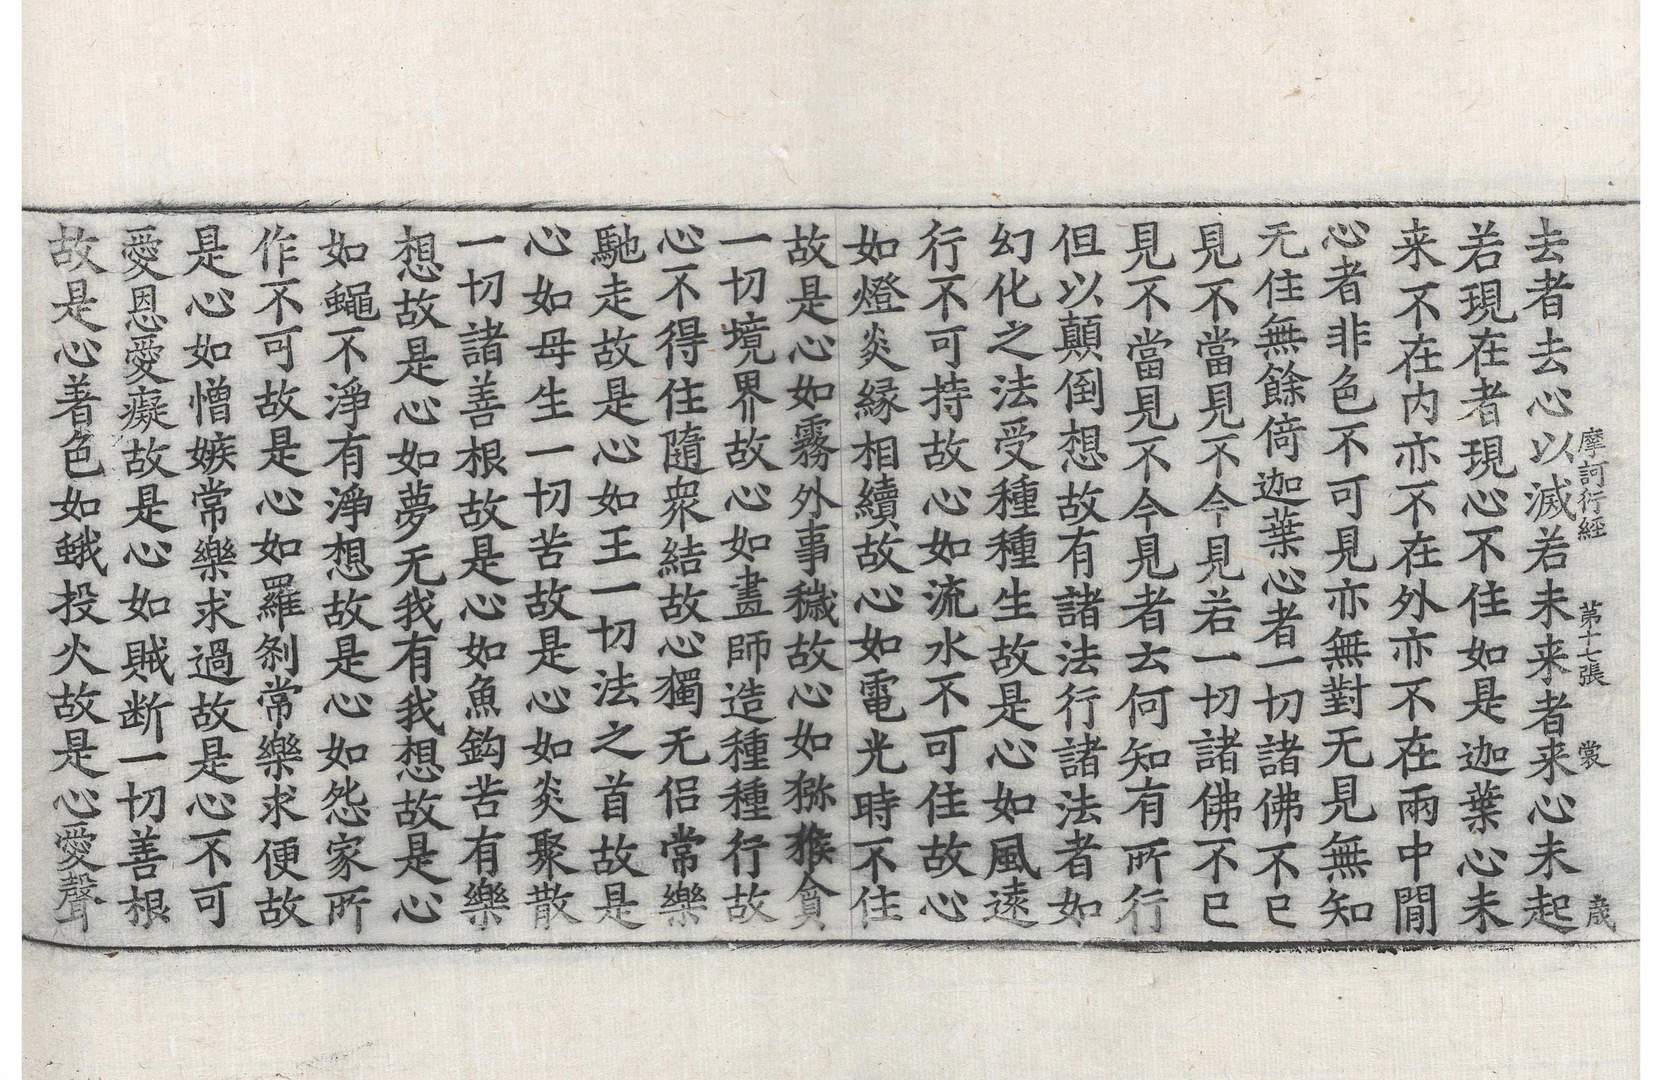 摩訶行經 第十七張 裳
去者去心以滅若未来者来心未起
若現在者現心不住如是迦葉心未
来不在内亦不在外亦不在兩中閒
心者非色不可見亦無對无見無知
无住無餘倚迦葉心者一切諸佛不已
見不當見不今見若一切諸佛不已
見不當見不今見者云何知有所行
但以顛倒想故有諸法行諸法者如
幻化之法受種種生故是心如風遠
行不可持故心如流水不可住故心
如燈炎縁相續故心如電光時不住
故是心如霧外事穢故心如猕猴貪
一切境界故心如畫師造種種行故
心不得住隨衆結故心獨无侣常樂
馳走故是心如王一切法之首故是
心如母生一切苦故是心如炎聚散
一切諸善根故是心如魚鈎苦有樂
想故是心如夢无我有我想故是心
如蠅不淨有淨想故是心如怨家所
作不可故是心如羅刹常樂求便故
是心如憎嫉常樂求過故是心不可
愛恩愛癡故是心如賊断一切善根
故是心著色如蛾投火故是心愛聲